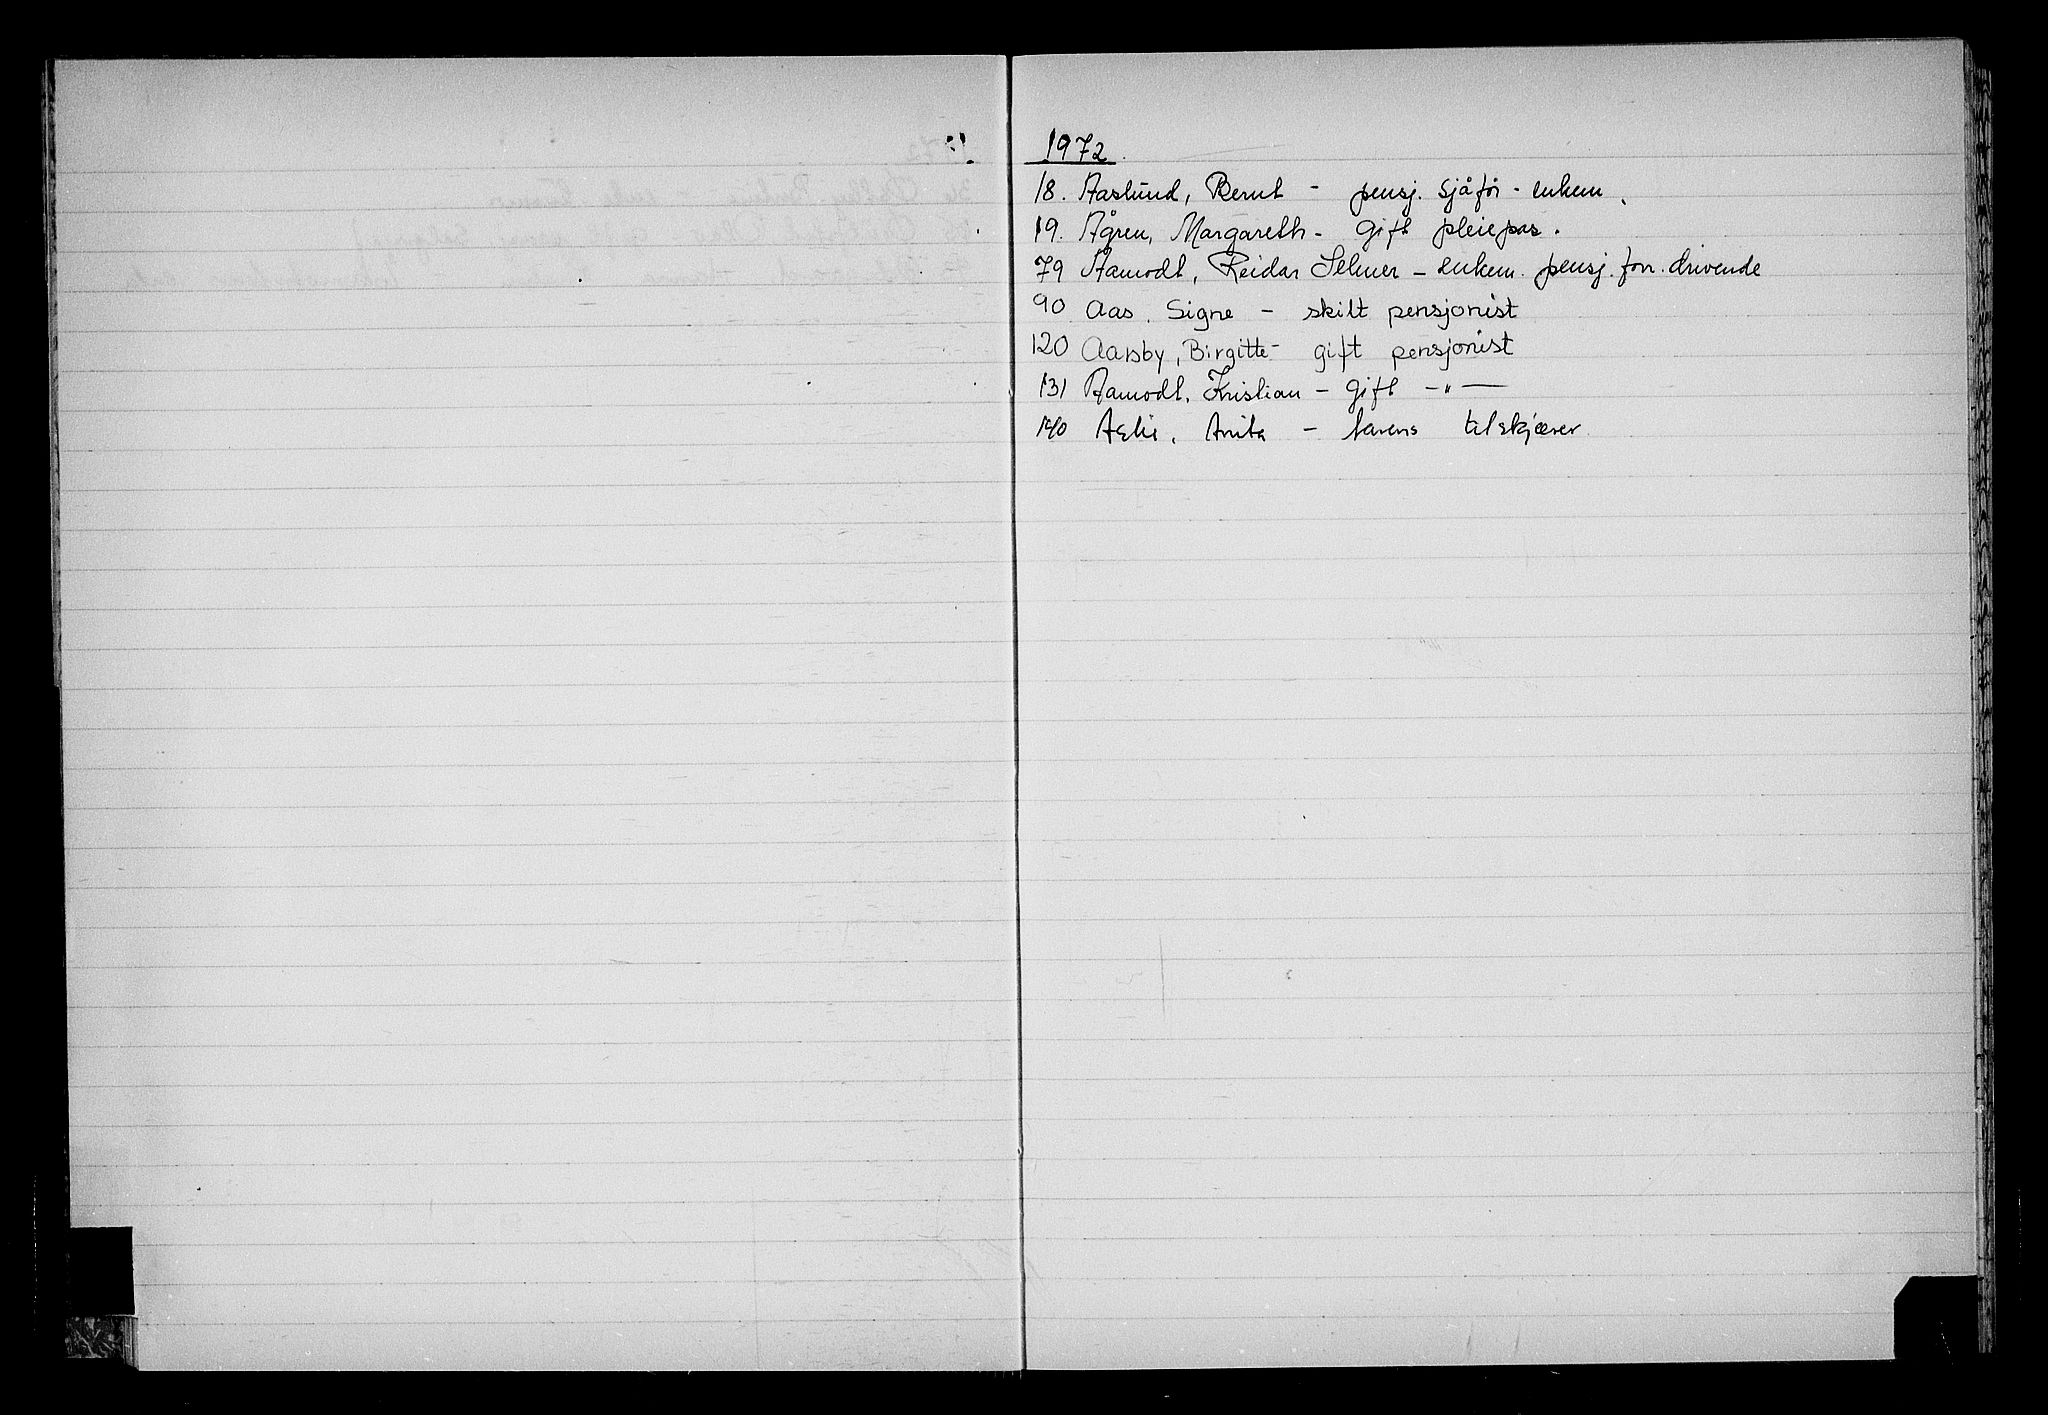 1972
18. Aaslund, Bernt - pensj. sjåfør - enkem.
19. Ågren, Margareth - gift pleiepas.
79 Aamodt, Reidar Selmer - enkem. pensj. forr. drivende
90 Aas, Signe - skilt pensjonist
120 Aarsby, Birgitte - gift pensjonist
131 Aamodt, Kristian - gift - " -
140 Anita - farens tilskjærer